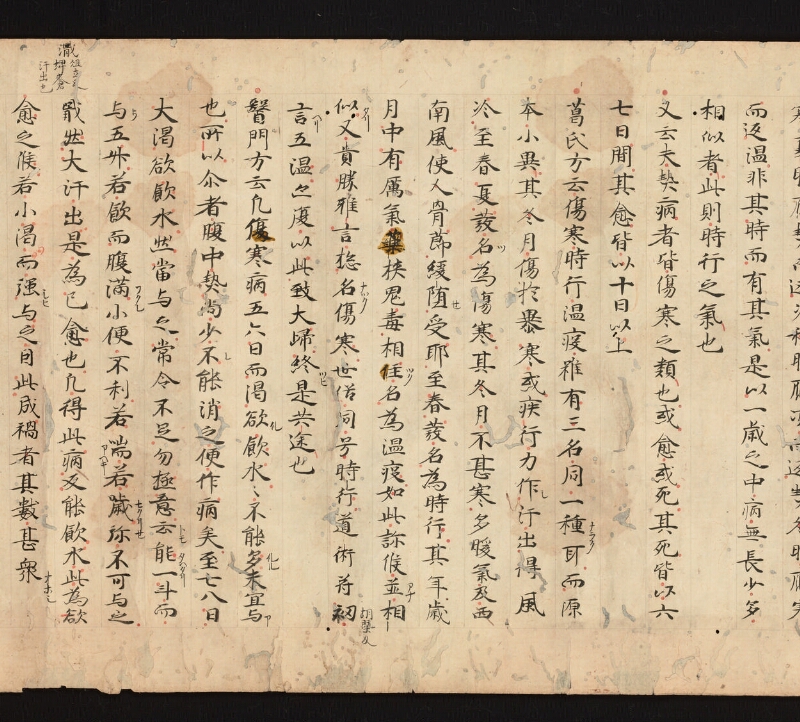 而返温非其時而有其氣是以一歳之中病無長少多
相似者此則時行之氣也
又云夫熱病者皆傷寒之類也或愈或死其死皆以六
七日間其愈皆以十日以上
葛氏方云傷寒時行温疫雖有三名同一種耳而源
本小異其冬月傷於暴寒或疾行力作汗出得風
冷至春夏發名為傷寒其冬月不甚寒多暖氣及西
南風使人骨莭緩墮受耶至春發名為時行其年歳
月中有厲氣𦽦挾鬼毒相注名為温疫如此診候並相
似又貴勝雅言惣名傷寒世俗同号時行道術符刾
言五温之復以此致大歸終是共途也
醫門方云凡傷寒病五六日而渴欲飲水〻不能多未宜与
也所以尒者腹中熱尚少不能消之便作病矣至七八日
大渴欲飲水然當与之常令不足勿極意云能一斗而
与五升若飲而腹滿小便不利若喘若噦弥不可与之
戢然大汗出是為已愈也凡得此病及能飲水此為欲
愈之候若小渴而强与之因此成禍者其數甚衆